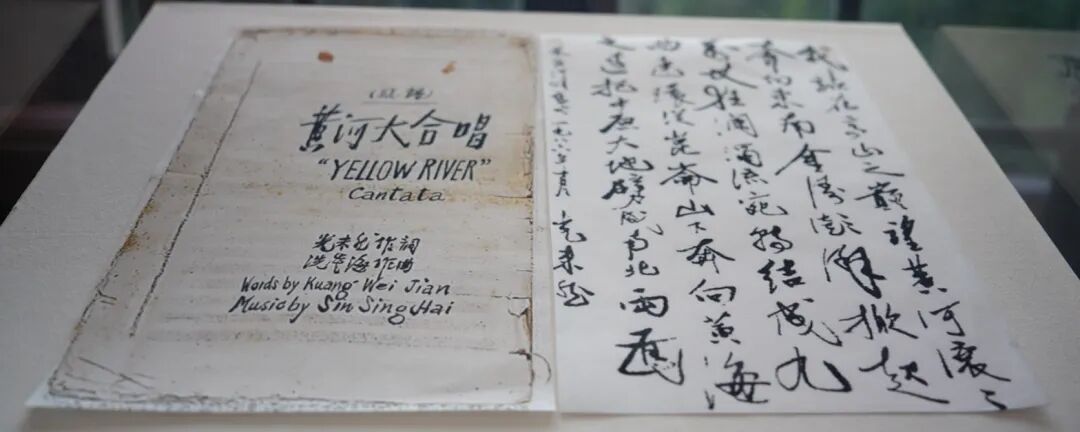 黄河大合唱
"YELLOW RIVER"
Cantata
光未然作詞
冼星海作曲
Words by Kuang Wei Jian
Music by Sin Sing Hai
我站在高山之巅望黄河滚〻
奔向东南金涛澎湃掀起
万丈狂澜浊流宛转结成九
曲连环从昆仑山下奔向黄海
之边把中原大地劈成南北两面
光未然